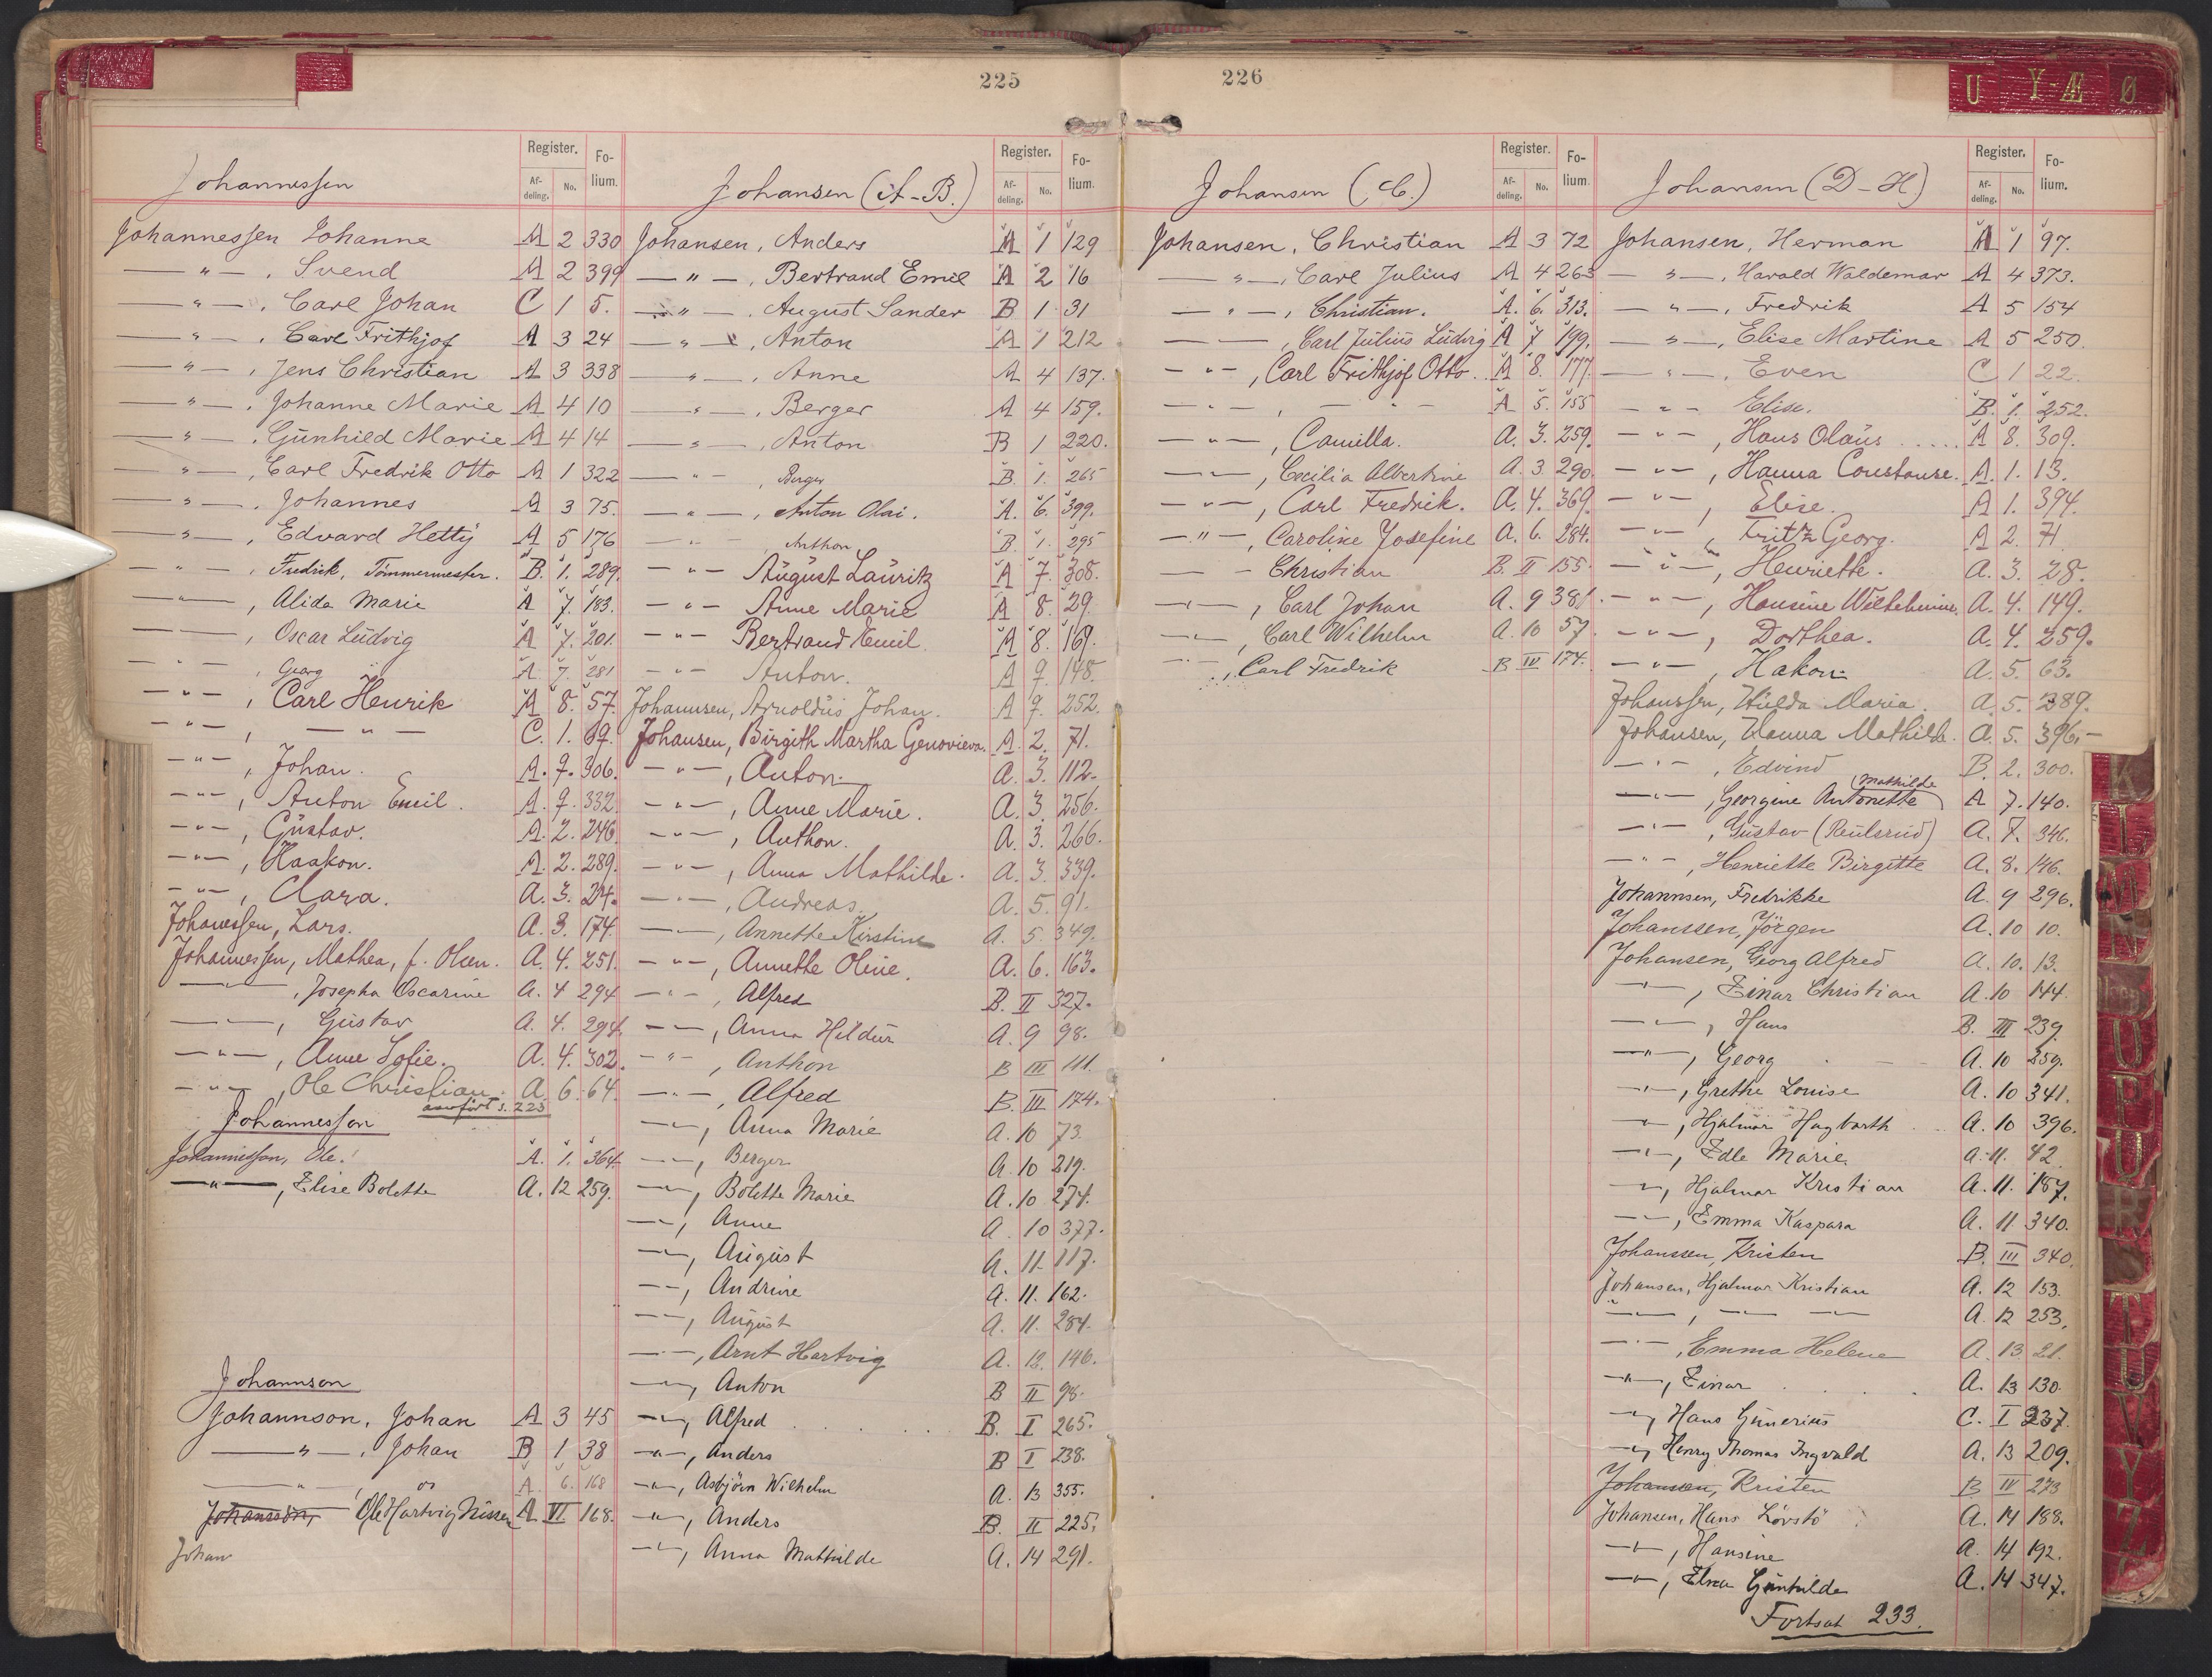 225
Johannessen
Register. Folium.
Afdeling. No.
Johannessen Johanne A 2 330
—"— , Svend A 2 399
—"— . Carl Johan C 1 5.
—"— . Carl Frithjof A 3 24
—"— , Jens Christian A 3 338
—"— . Johanne Marie A 4 10
—"— . Gunhild Marie A 4 14
—"— , Carl Fredrik Otto A 1 322
—"— . Johannes A 3 75.
—"— , Edvard Hetty A 5 176
—"— , Fredrik, Tömmermester. B. 1. 289.
—"— , Alida Marie A 7. 183.
—"— , Oscar Ludvig A 7. 201.
—"— , Georg A. 7. 281
—"— , Carl Henrik A 8. 57.
—"— , —"— C. 1. 69.
—"— , Johan. A. 9. 306.
—"— , Anton Emil. A. 9. 332.
—"— , Gustav. A. 2. 246.
—"— , Haakon. A. 2. 289.
—"— , Clara. A. 3. 24.
Johanessen, Lars. A. 3. 174.
Johannessen, Mathea, f. Olsen. A. 4. 251.
—"— , Josepha Oscarine A. 4 294
—"— , Gustav A. 4. 294.
—"— , Anne Sofie. A. 4. 302.
—"— , Ole Christian. A. 6. 64.
Johannesson
Johannesson, Ole. A. 1. 364.
—"— , Elise Bolette A. 12 259.
Johannson
Johannson, Johan A 3 45
—"— . Johan B 1 38
—"— , A. 6. 168
Johansson, Ole Hartvig Nissen A VI 168.
Johan
Johansen (A-B.)
Register. Folium.
Afdeling. No.
Johansen, Anders A 1 129
—"— , Bertrand Emil A 2 16
—"— . August Sander B 1 31
—"— , Anton A 1 212
—"— , Anne A 4 137.
—"— , Berger A 4 159.
—"— , Anton B 1 220.
—"— , Berger B. 1. 265
—"— , Anton Olai. A. 6. 399.
—"— , Anthon B. 1. 295
—"— August Lauritz A 7. 308.
—"— Anne Marie A 8. 29.
—"— Bertrand Emil. A 8. 169.
—"— Anton. A 9. 148.
Johannsen, Arnoldus Johan. A 9. 252.
Johansen, Birgith Martha Genovieva. A. 2. 71.
—"— , Anton. A. 3. 112.
—"— , Anne Marie. A. 3. 256.
—"— , Anthon. A. 3. 266.
—"— , Anna Mathilde. A. 3. 339.
—"— , Andreas. A. 5. 91.
—"— , Annette Kirstine A. 5. 349.
—"— , Annette Oline. A. 6. 163.
—"— , Alfred B. II 327.
—"— , Anna Hildur A. 9 98.
—"— , Anthon B III 111.
—"— , Alfred B. III 174.
—"— , Anna Marie A. 10 73.
—"— , Berger A. 10 219.
—"— , Bolette Marie A. 10 274.
—"— , Anne A. 10 377.
—"— , August A. 11. 117.
—"— , Andrine A. 11. 162.
—"— , August A. 11. 284.
—"— , Arnt Hartvig A. 12. 146.
—"— , Anton B II 98.
—"— , Alfred B. I 265.
—"— , Anders B I 238.
—"— , Asbjörn Wilhelm A. 13 355.
—"— , Anders B. II 225.
—"— , Anna Mathilde A. 14 291.
226
Johansen (C.)
Register. Folium.
Afdeling. No.
Johansen, Christian A 3 72
—"— , Carl Julius A 4 263
—"— , Christian. A. 6. 313.
—"— , Carl Julius Ludvig A 7 199.
—"— , Carl Frithjof Otto. A 8. 177.
—"— , —"— A 5. 155
—"— , Camilla. A. 3. 259.
—"— , Cecilia Albertine A. 3. 290.
—"— , Carl Fredrik. A. 4. 369.
—"— , Caroline Josefine A. 6. 284.
— — Christian B. II 155.
—"— , Carl Johan A. 9 381.
—"— , Carl Wilhelm A. 10 57.
—"— , Carl Fredrik B IV 174.
Johansen (D-H.)
Register. Folium.
Afdeling. No.
Johansen, Herman A 1 97.
—"— , Harald Waldemar A 4 373.
—"— , Fredrik A 5 154
—"— , Elise Martine A 5 250.
—"— , Even C 1 22.
—"— Elise. B. 1. 252.
—"— , Hans Olaus ..... A 8. 309.
—"— , Hanna Constanse. A. 1. 13.
—"— , Elise. A 1. 394.
—"— , Fritz Georg. A 2. 71
—"— , Henriette. A. 3. 28.
—"— , Hansine Wilhelmine. A. 4. 149.
—"— , Dorthea. A. 4. 259.
—"— , Hakon. A. 5. 63.
Johanssen, Hulda Maria. A. 5. 389.
Johansen, Hanna Mathilde. A. 5. 396.
—"— , Edvind B. 2. 300.
—"— , Georgine Antonette (Mathilde) A 7. 140.
—"— , Gustav (Reulsrud) A. 7. 346.
—"— , Henriette Birgitte A. 8. 146.
Johannsen, Fredrikke A. 9 296.
Johanssen, Jörgen A. 10 10.
Johansen, Georg Alfred A. 10. 13.
—"— , Einar Christian A. 10 144.
—"— , Hans B. III 239.
—"— , Georg A. 10 259.
—"— , Grethe Louise A. 10 341.
—"— , Hjalmar Hagbarth A. 10 396.
—"— , Edle Marie A. 11. 42.
—"— , Hjalmar Kristian A. 11. 187.
—"— , Emma Kaspara A. 11 340.
Johanssen, Kristen B. III 340.
Johansen, Hjalmar Kristian A. 12 153.
—"— , — — A. 12 253.
—"— , Emma Helene A. 13 21.
—"— , Einar A. 13 130.
—"— , Hans Gunerius C. I 237.
—"— , Henry Thomas Ingvald A. 13 209.
Johansen, Kristen B IV 273
Johansen, Hans Lövstö A. 14 188.
—"— , Hansine A. 14 192.
—"— , Elna Gunhilde A. 14 347.
Fortsat 233.
U Y-Æ Ø